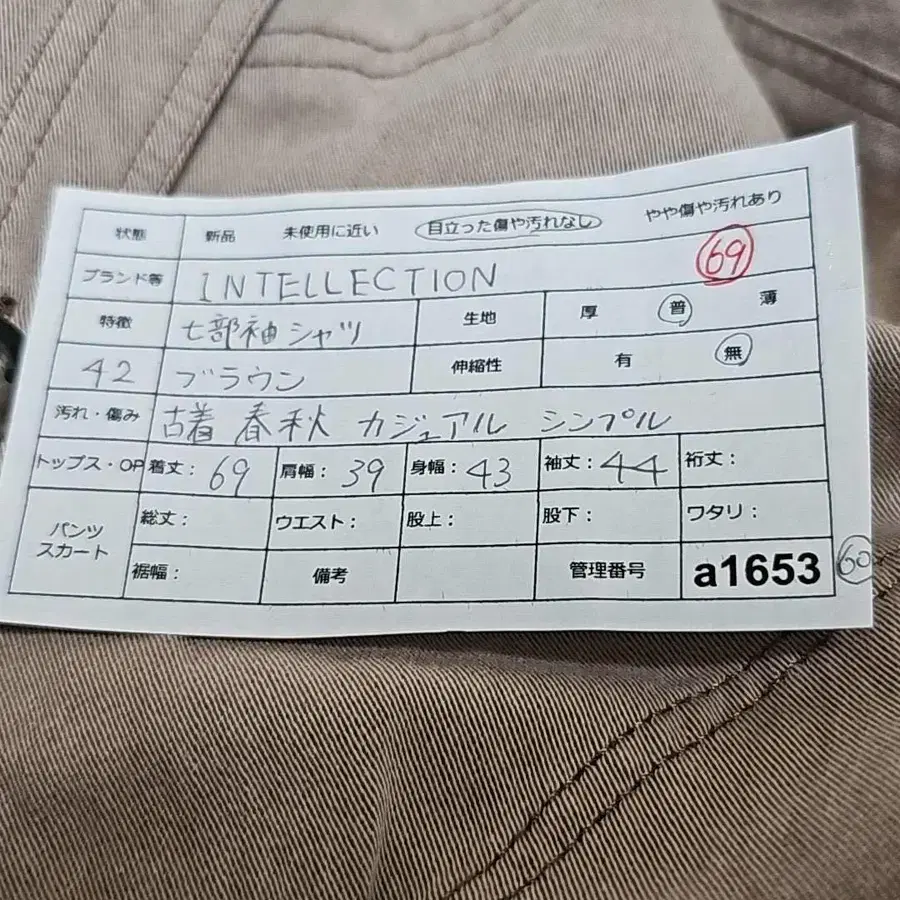 状態 新品 未使用に近い 目立った傷や汚れなし やや傷や汚れあり
ブランド等 INTELLECTION 69
特徴 七部袖シャツ 生地 厚 普 薄
42 ブラウン 伸縮性 有 無
汚れ・傷み 古着 春秋 カジュアル シンプル
トップス・OP 着丈: 69 肩幅: 39 身幅: 43 袖丈: 44 裄丈:
パンツ
スカート
総丈: ウエスト: 股上: 股下: ワタリ:
裾幅: 備考 管理番号 a1653 60